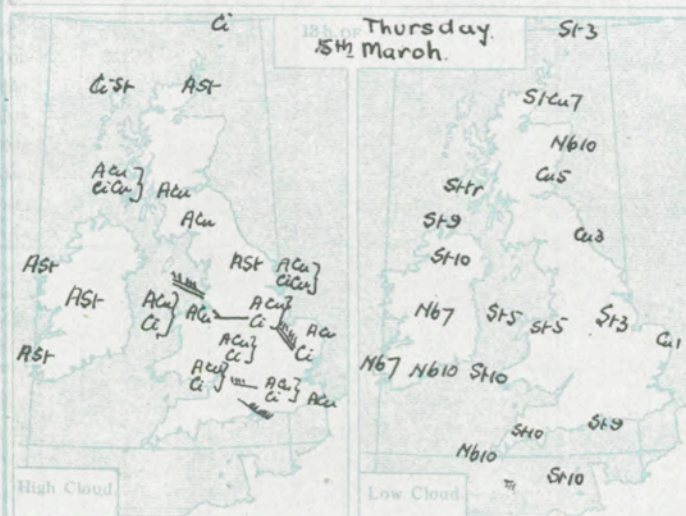 13h. OF Thursday.
15th March.
Ci
CiSt ASt
ACu
CiCu
ACu
ACu
ASt
ASt
ACu
CiCu
ASt
ACu
Ci
ACu
ACu
Ci
ACu
Ci
ASt
ACu
Ci
ACu
Ci
ACu
Ci
ACu
High Cloud.
St3
StCu7
Nb10
Cu5
Sttr
St9
Cu3
St10
Nb7 St5 St5 St3
Cu1
Nb7 Nb10 St10
St10 St9
Nb10
St10
Low Cloud.